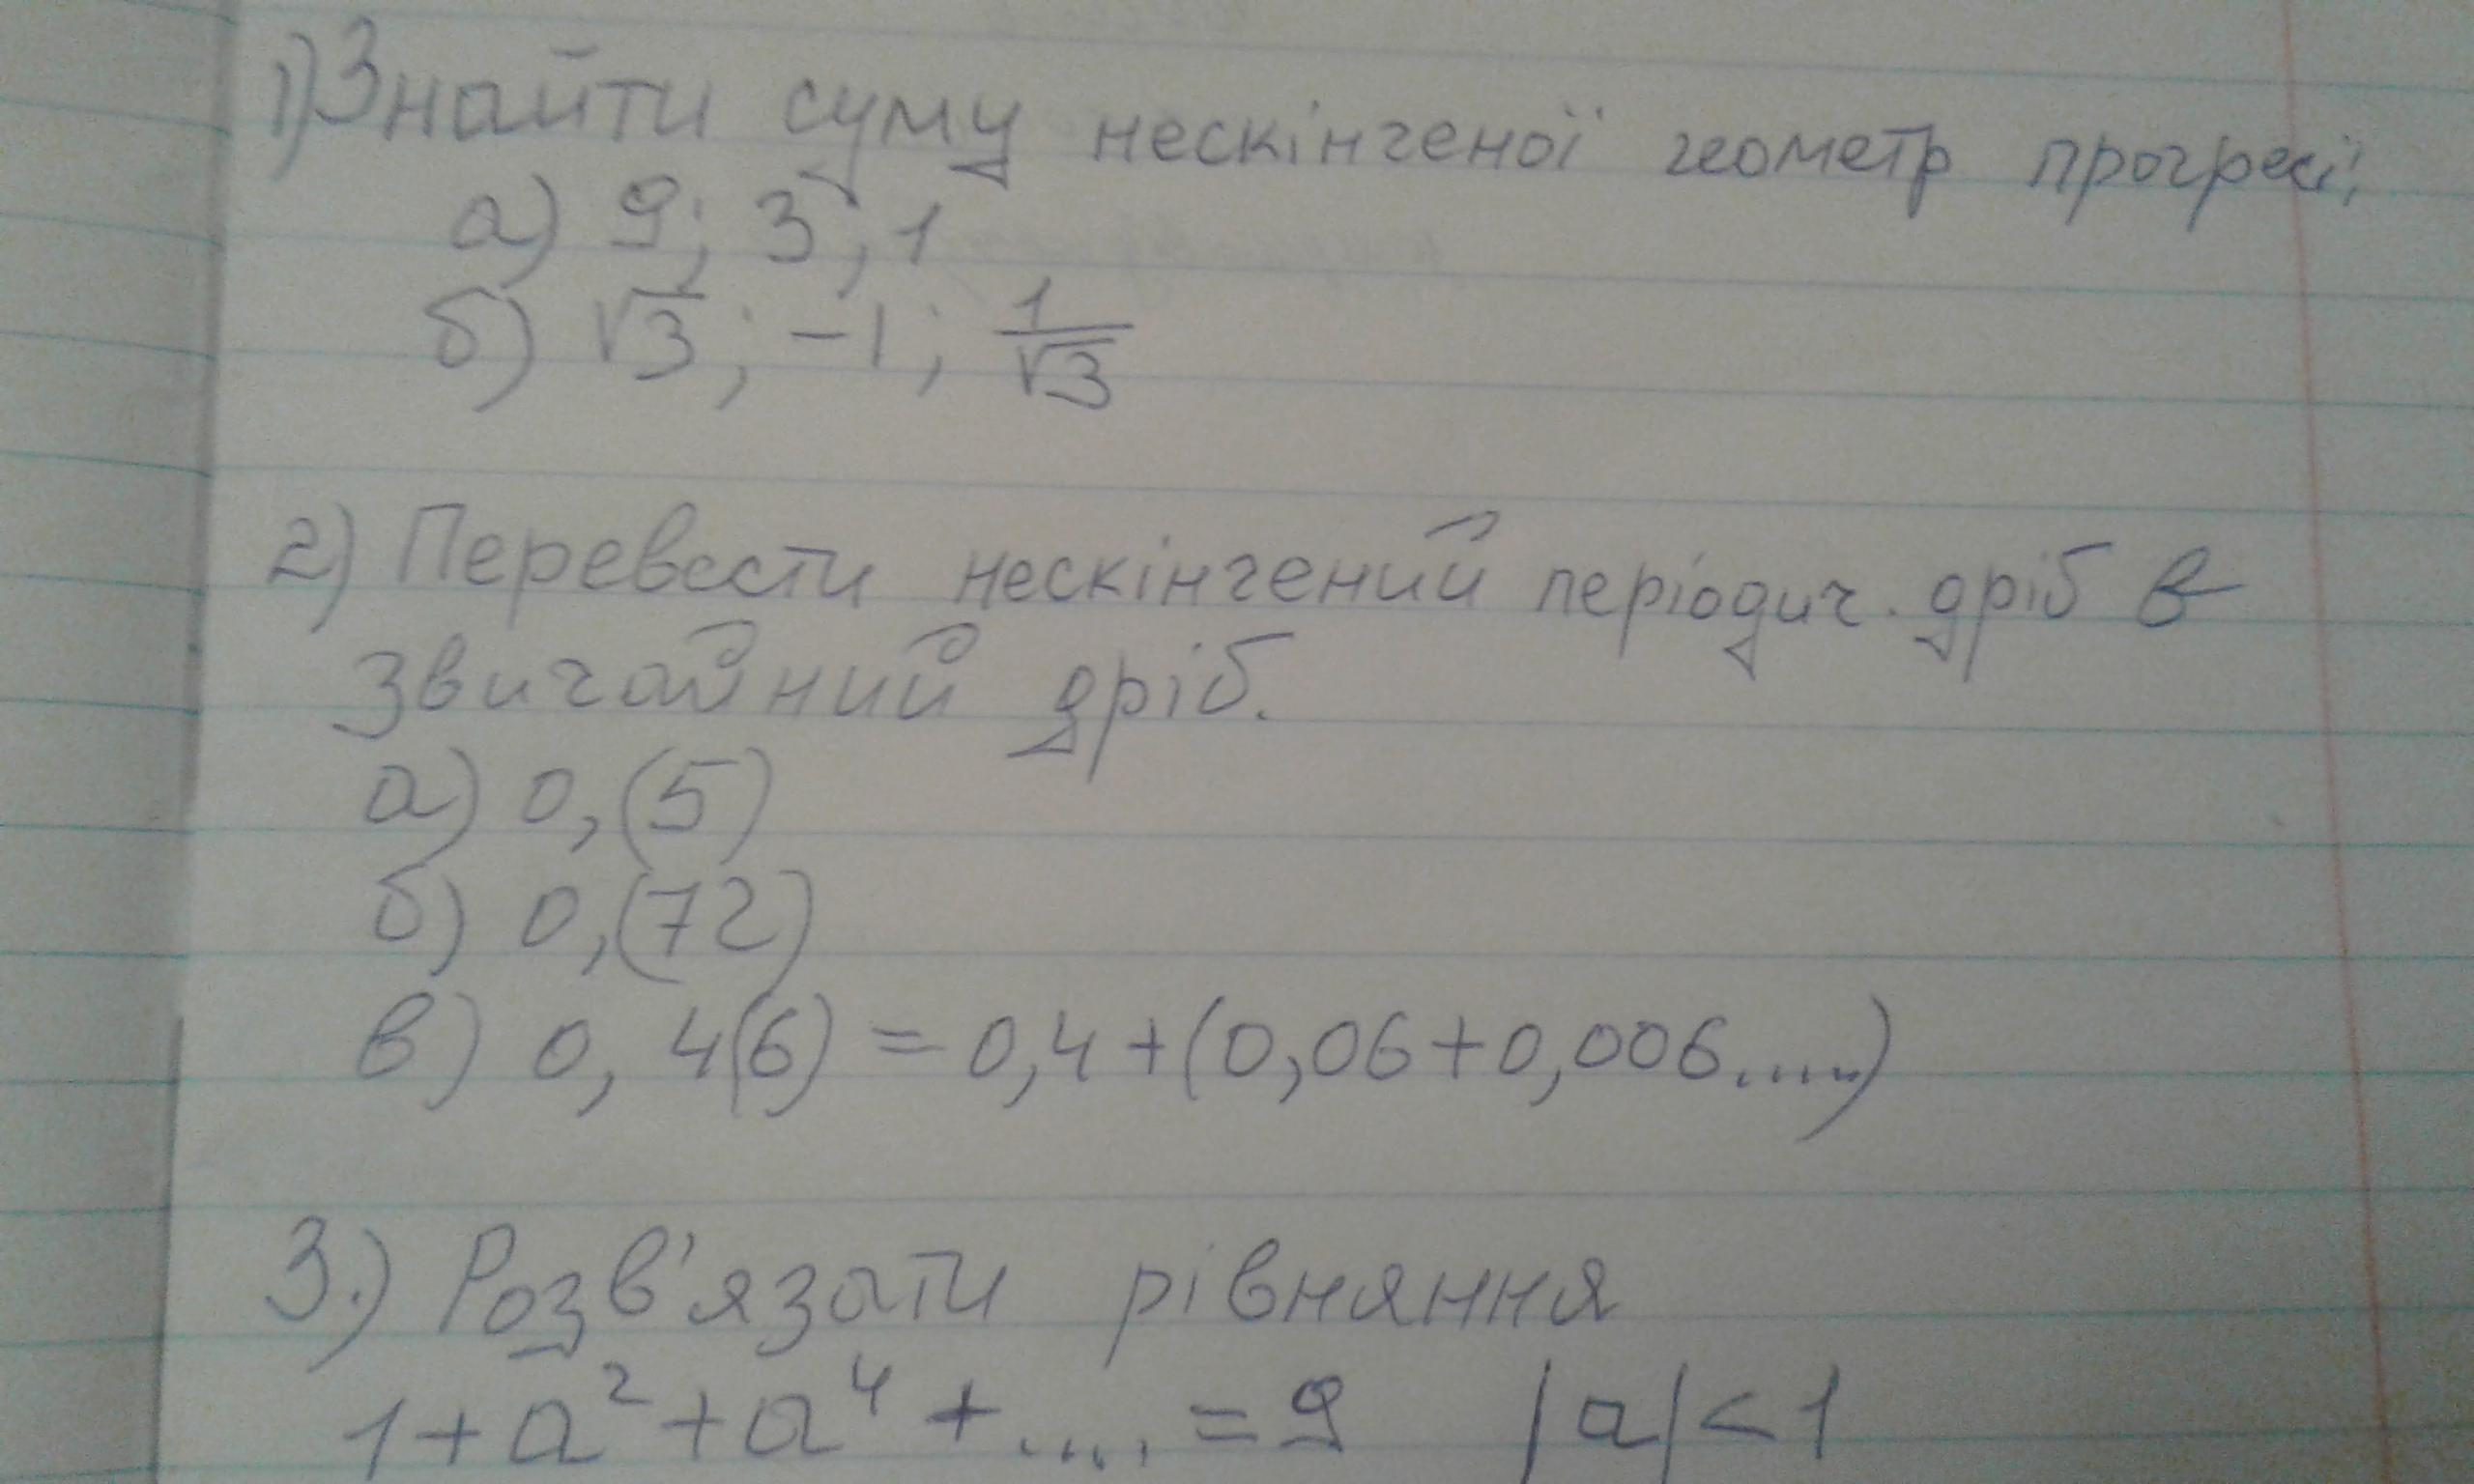 1) Знайти суму нескінченої геометр прогресії
а) 9; 3; 1
б) √3; -1; 1/√3
2) Перевести нескінчений періодич. дріб в
звичайний дріб.
а) 0,(5)
б) 0,(72)
в) 0,4(6) = 0,4+(0,06+0,006.....)
3.) Розв'язати рівняння
1+a²+a⁴+.... = 9 |a|<1